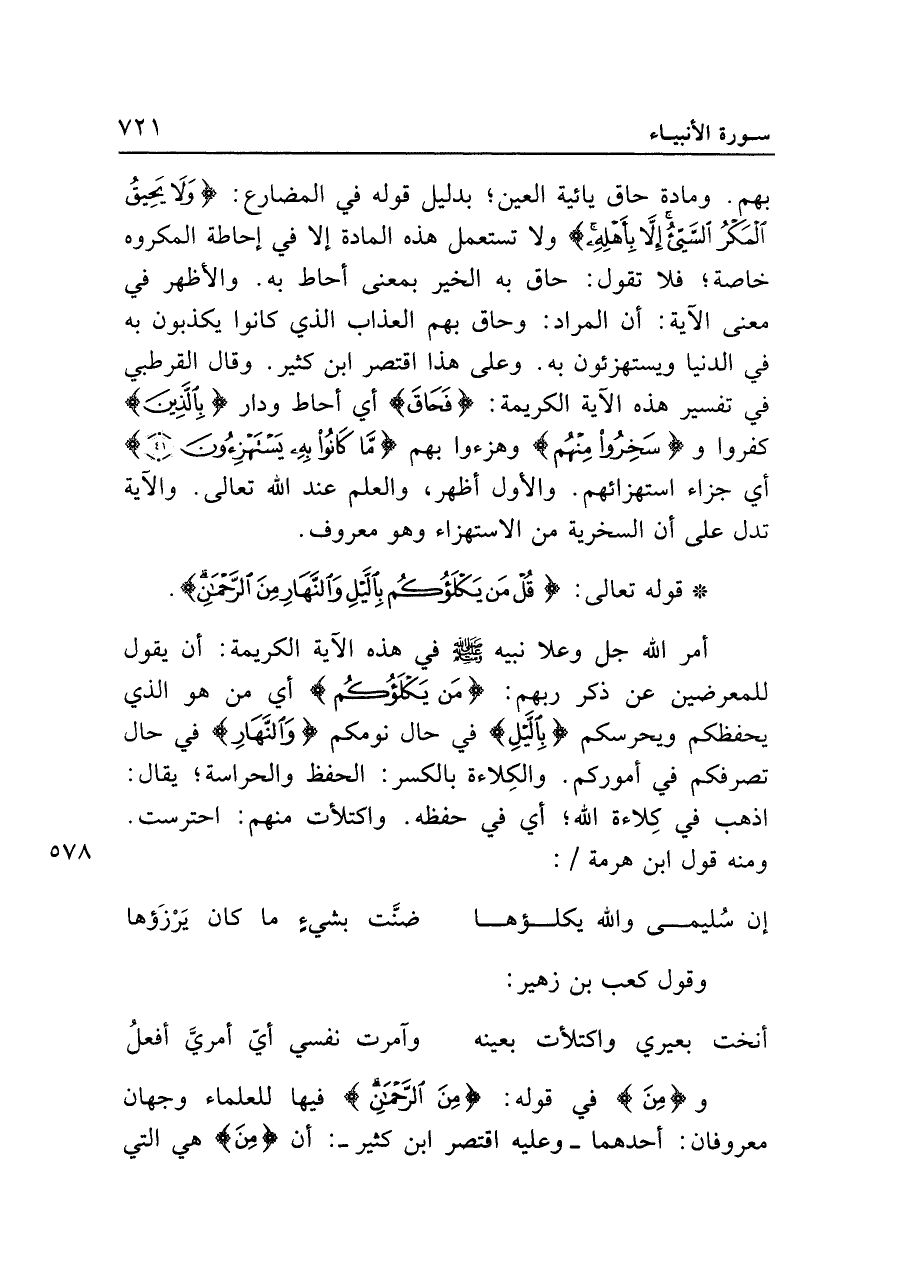 سورة الأنبياء ٧٢١
بهم. ومادة حاق يائية العين؛ بدليل قوله في المضارع: ﴿وَلَا يَحِيقُ
ٱلْمَكْرُ ٱلسَّيِّئُ إِلَّا بِأَهْلِهِۦۚ﴾ ولا تستعمل هذه المادة إلا في إحاطة المكروه
خاصة؛ فلا تقول: حاق به الخير بمعنى أحاط به. والأظهر في
معنى الآية: أن المراد: وحاق بهم العذاب الذي كانوا يكذبون به
في الدنيا ويستهزئون به. وعلى هذا اقتصر ابن كثير. وقال القرطبي
في تفسير هذه الآية الكريمة: ﴿فَحَاقَ﴾ أي أحاط ودار ﴿بِٱلَّذِينَ﴾
كفروا و ﴿سَخِرُوا۟ مِنْهُم﴾ وهزءوا بهم ﴿مَّا كَانُوا۟ بِهِۦ يَسْتَهْزِءُونَ ٤١﴾
أي جزاء استهزائهم. والأول أظهر، والعلم عند الله تعالى. والآية
تدل على أن السخرية من الاستهزاء وهو معروف.
* قوله تعالى: ﴿قُلْ مَن يَكْلَؤُكُم بِٱلَّيْلِ وَٱلنَّهَارِ مِنَ ٱلرَّحْمَٰنِۗ﴾.
أمر الله جل وعلا نبيه ﷺ في هذه الآية الكريمة: أن يقول
للمعرضين عن ذكر ربهم: ﴿مَن يَكْلَؤُكُم﴾ أي من هو الذي
يحفظكم ويحرسكم ﴿بِٱلَّيْلِ﴾ في حال نومكم ﴿وَٱلنَّهَارِ﴾ في حال
تصرفكم في أموركم. والكِلاءة بالكسر: الحفظ والحراسة؛ يقال:
اذهب في كِلاءة الله؛ أي في حفظه. واكتلأت منهم: احترست.
ومنه قول ابن هرمة / : ٥٧٨
إن سُليمــى والله يكلــؤهــا ضنَّت بشيءٍ ما كان يَرْزَؤها
وقول كعب بن زهير:
أنخت بعيري واكتلأت بعينه وآمرت نفسي أيّ أمريَّ أفعلُ
و ﴿مِنَ﴾ في قوله: ﴿مِنَ ٱلرَّحْمَٰنِۗ﴾ فيها للعلماء وجهان
معروفان: أحدهما ـ وعليه اقتصر ابن كثير ـ: أن ﴿مِنَ﴾ هي التي